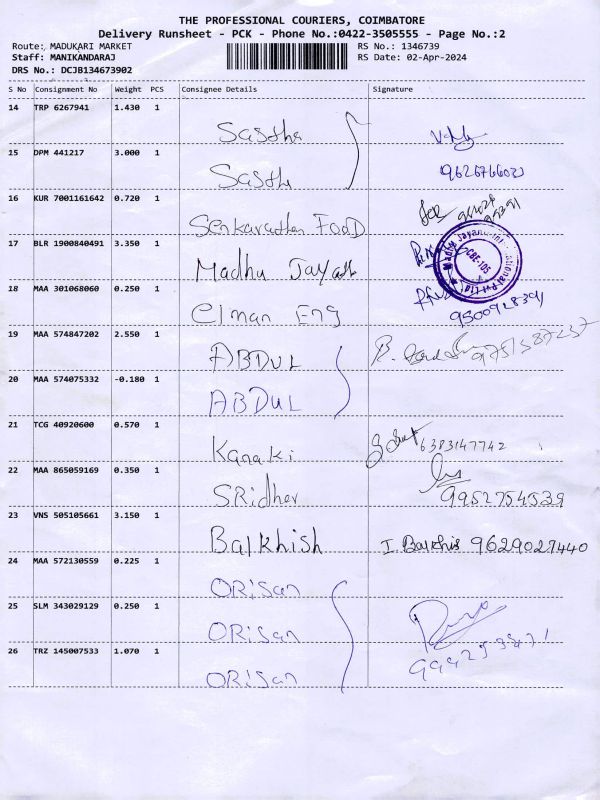 THE PROFESSIONAL COURIERS, COIMBATORE
Delivery Runsheet - PCK - Phone No.:0422-3505555 - Page No.:2
Route: MADUKARI MARKET RS No.: 1346739
Staff: MANIKANDARAJ RS Date: 02-Apr-2024
DRS No.: DCJB134673902
S No Consignment No Weight PCS Consignee Details Signature
14 TRP 6267941 1.430 1 Sastha
15 DPM 441217 3.000 1 Sasth
16 KUR 7001161642 0.720 1 Food
17 BLR 1900840491 3.350 1 Madhu Jayath
CBE-105
18 MAA 301068060 0.250 1 Elman Eng 9500928391
19 MAA 574847202 2.550 1 ABDUL
20 MAA 574075332 -0.180 1 ABDUL
21 TCG 40920600 0.570 1 Kanaki 6383147742
22 MAA 865059169 0.350 1 SRidher 9952754539
23 VNS 505105661 3.150 1 Balkhish I. Balkhis 9629027440
24 MAA 572130559 0.225 1 ORiSan
25 SLM 343029129 0.250 1 ORiSan
26 TRZ 145007533 1.070 1 ORiSan